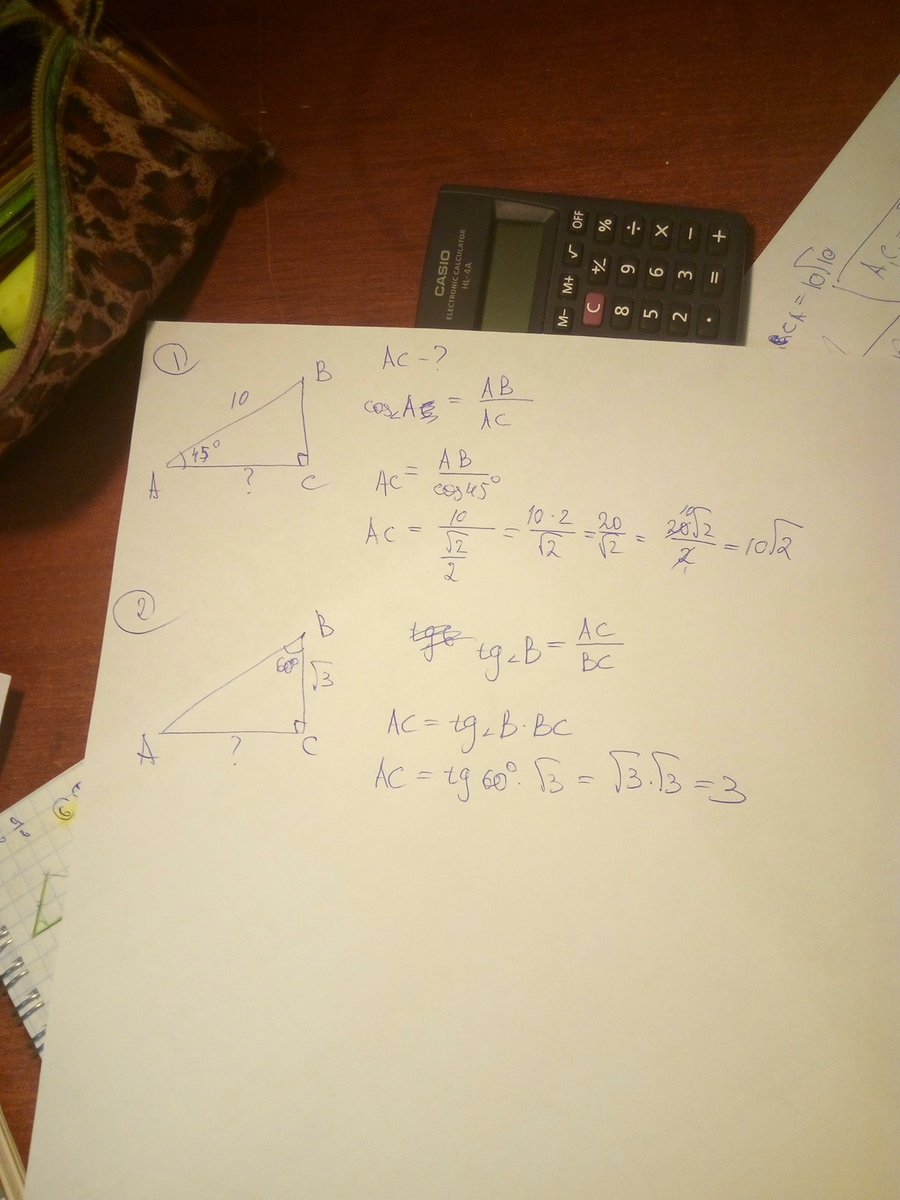 CASIO
ELECTRONIC CALCULATOR
HL-4A
OFF % ÷ × − +
√ +/− 9 6 3 =
M− M+ C 8 5 2 .
= 10√10
①
B
10
45°
A
?
C
AC - ?
cos∠A = AB/AC
AC = AB/cos45°
AC = 10/(√2/2) = 10·2/√2 = 20/√2 = 20√2/2 = 10√2
10
1
②
B
60°
√3
A
?
C
tg∠B = AC/BC
AC = tg∠B·BC
AC = tg 60°·√3 = √3·√3 = 3